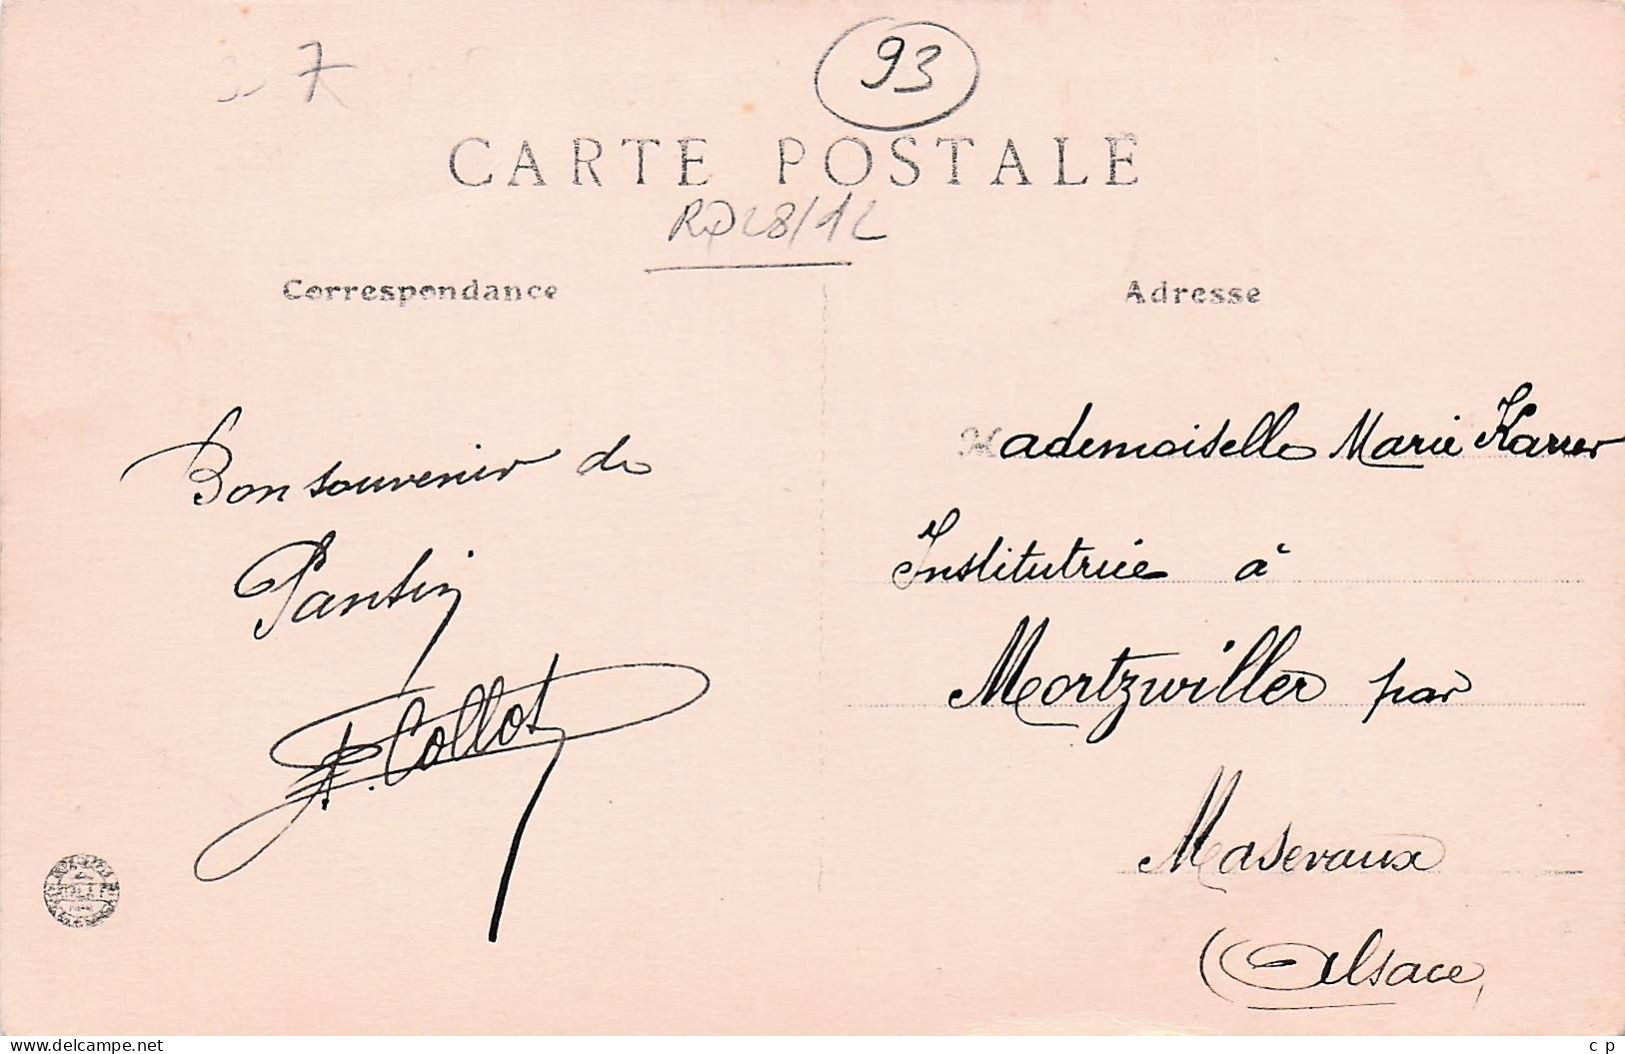 7
93
CARTE POSTALE
Correspondance
Adresse
Bon souvenir de
Pantin
Collot
Mademoiselle Marie Karrer
Institutrice à
Mortzwiller par
Masevaux
(Alsace)
delcampe.net
cp